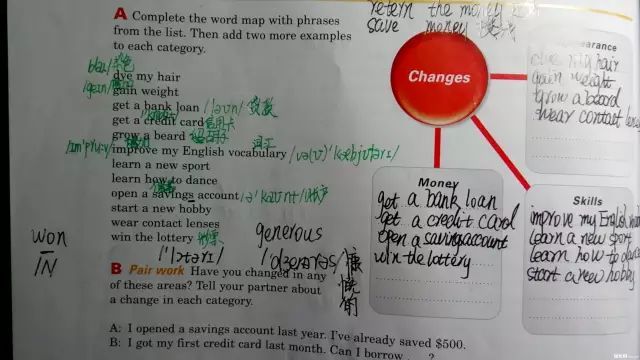 retern the money
save money
A Complete the word map with phrases
from the list. Then add two more examples
to each category.
dye my hair
gain weight
get a bank loan
get a credit card 信用卡
grow a beard
improve my English vocabulary
learn a new sport
learn how to dance
open a savings account
start a new hobby
wear contact lenses
win the lottery
won
IN
generous
慷慨的
Changes
dye my hair
gain weight
grow a beard
wear contact lenses
Money
get a bank loan
get a credit card
open a savings account
win the lottery
Skills
improve my English
learn a new sport
learn how to dance
start a new hobby
B Pair work Have you changed in any
of these areas? Tell your partner about
a change in each category.
A: I opened a savings account last year. I've already saved $500.
B: I got my first credit card last month. Can I borrow ?